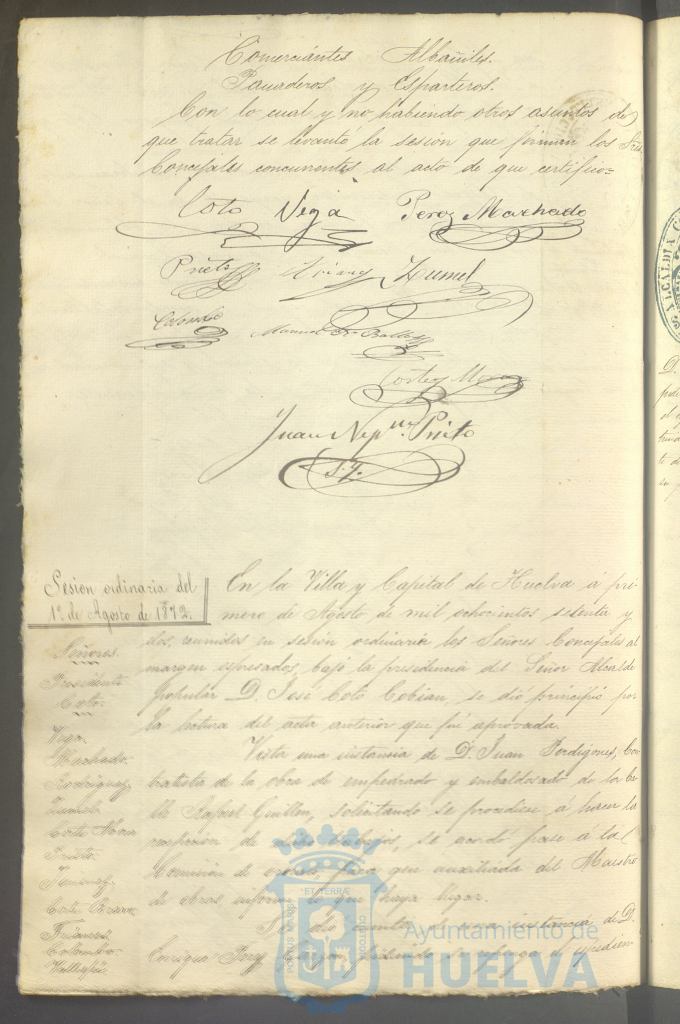 Comerciantes Albañiles.
Panaderos y Esparteros.
Con lo cual y no habiendo otros asuntos de
que tratar se levantó la sesion que firman los Sres
Concejales concurrentes al acto de que certifico=
Coto Vega Perez Machado
Prieto Jumel
Colombo Manuel
Cortes Mora
Juan Nepno. Prieto
S. I.
Sesion ordinaria del
1º de Agosto de 1872.
Señores.
Presidente
Coto.
Vega.
Machado.
Rodriguez
Jumel
Corte Mora
Prieto
Jimenez
Corte Bravo
Colombo
En la Villa y Capital de Huelva á pri
mero de Agosto de mil ochocientos setenta y
dos, reunidos en sesión ordinaria los Señores Concejales al
margen espresados, bajo la presidencia del Señor Alcalde
Popular D. José Coto Cobian, se dió principio por
la lectura del acta anterior que fué aprovada.
Vista una instancia de D. Juan Perdigones, Con
tratista de la obra de empedrado y embaldosado de la Ca
lle Rafael Guillen, solicitando se procediese á hacer la
recepcion de dichos trabajos, se acordó pase á la
Comision de ornato, para que auxiliada del Maestro
de obras, informe lo que haya lugar.
Se dió cuenta de una instancia de D.
Enrique pidiendo se espediente
ET TERRAE
PORTUS MARIS
CUSTODIA
Ayuntamiento de
HUELVA
ALCALDIA
D.